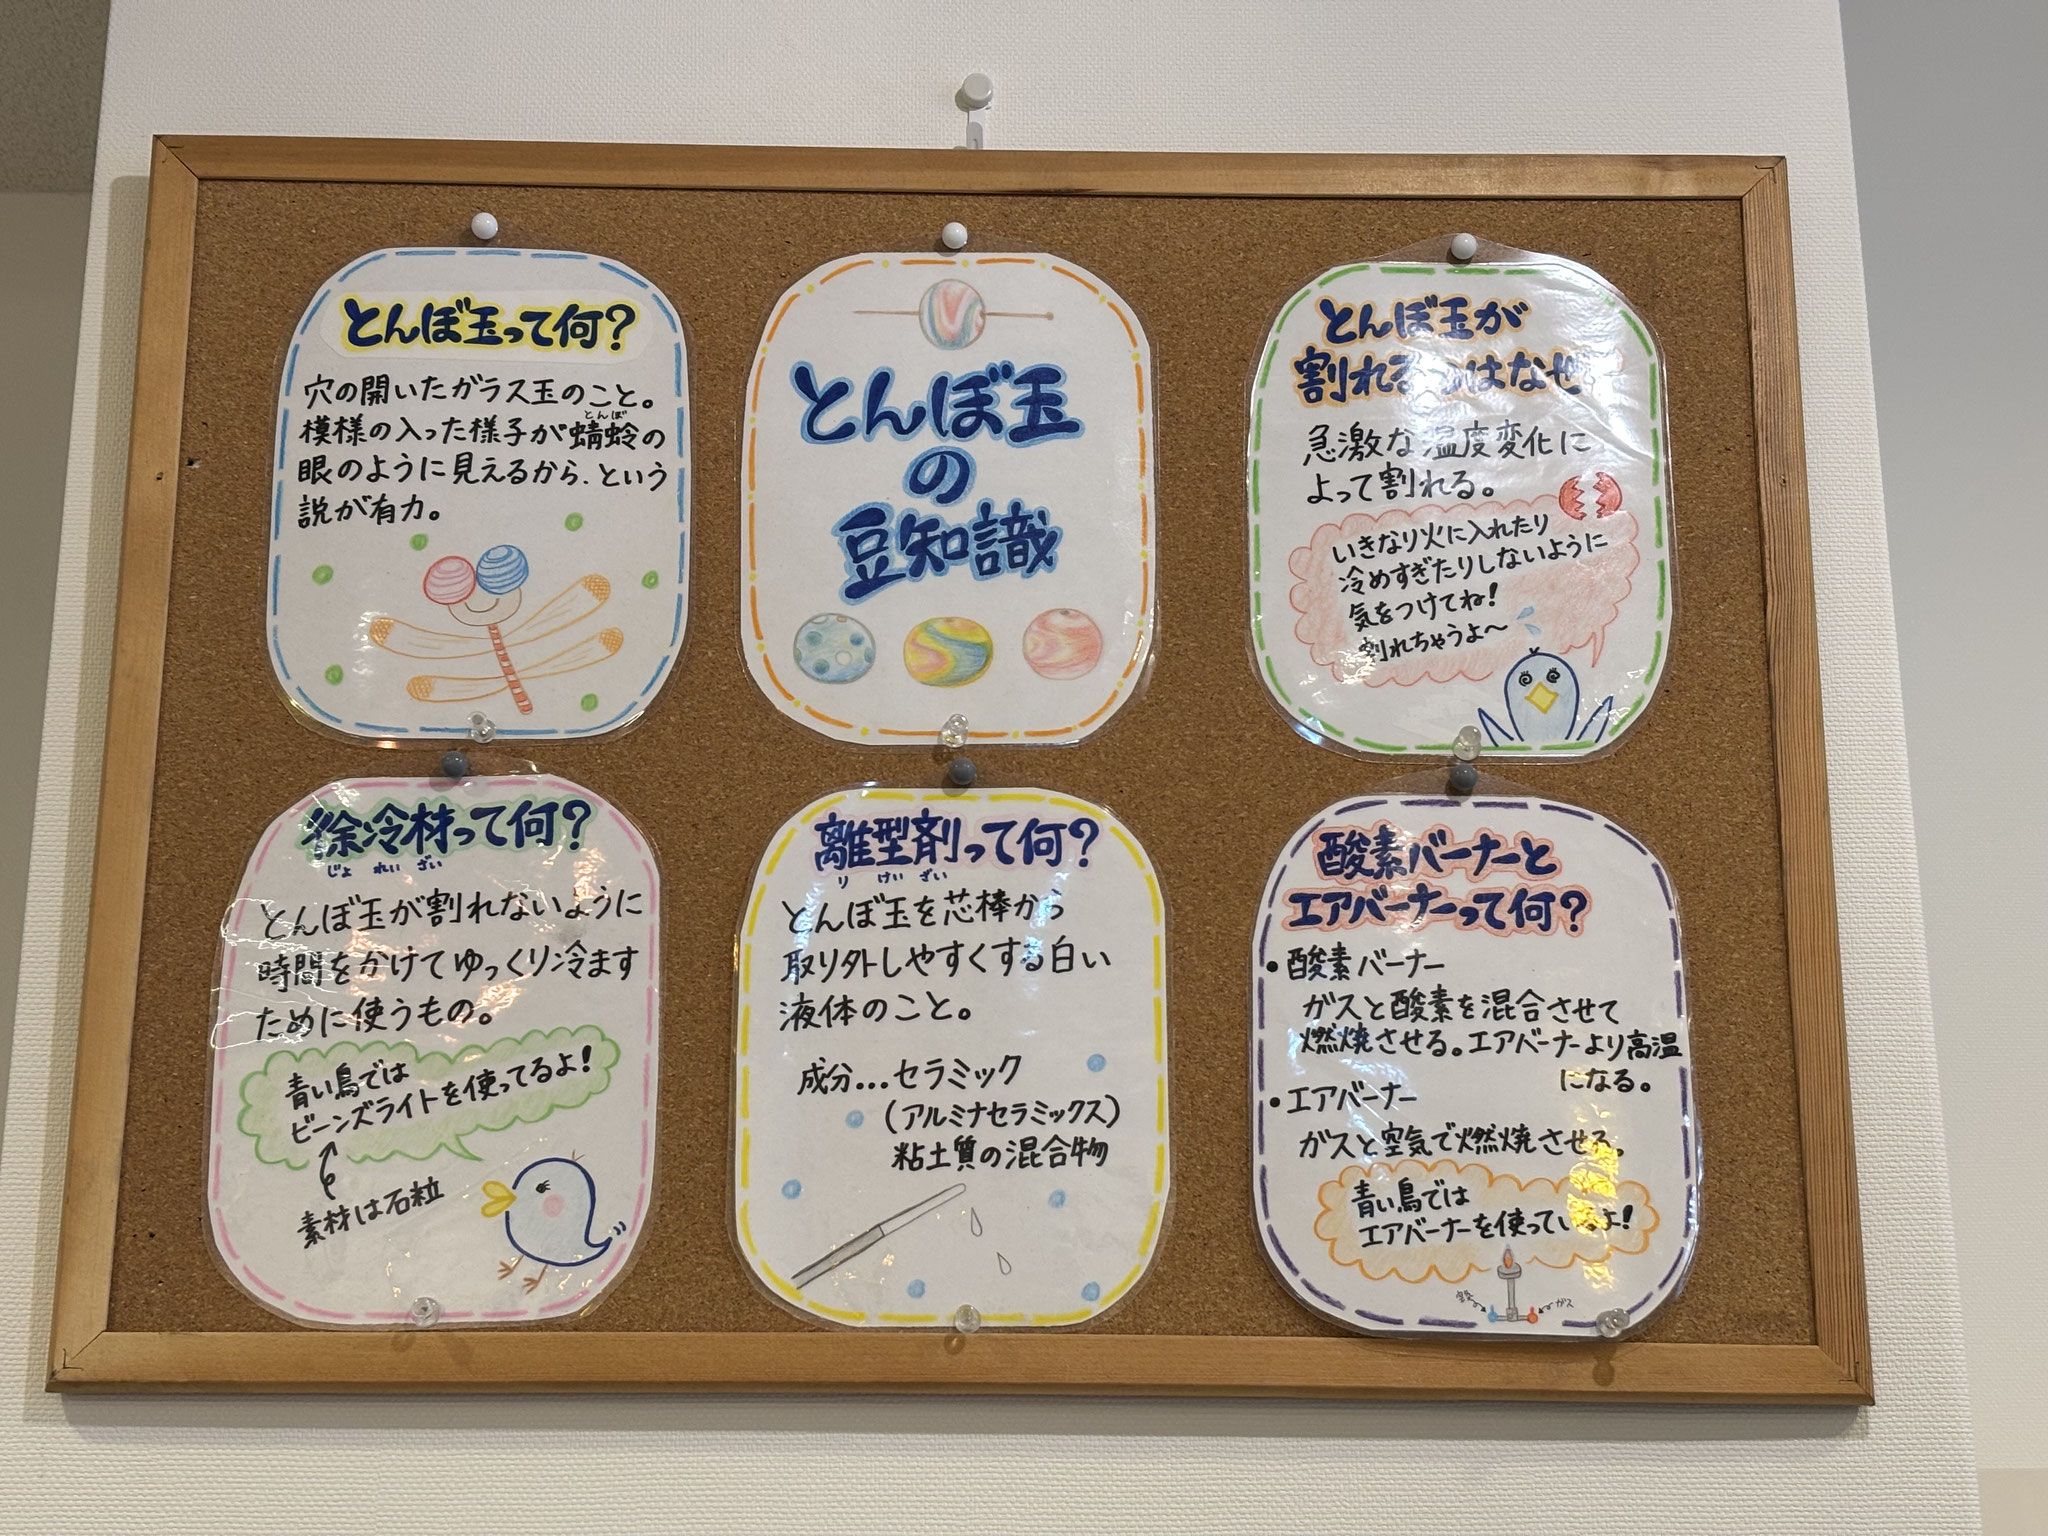 とんぼ玉って何？
穴の開いたガラス玉のこと。
とんぼ
模様の入った様子が蜻蛉の
眼のように見えるから、という
説が有力。
とんぼ玉
の
豆知識
とんぼ玉が
割れるのはなぜ
急激な温度変化に
よって割れる。
いきなり火に入れたり
冷めすぎたりしないように
気をつけてね！
割れちゃうよ〜
徐冷材って何？
じょ れい ざい
とんぼ玉が割れないように
時間をかけてゆっくり冷ます
ために使うもの。
青い鳥では
ビーンズライトを使ってるよ！
素材は石粒
離型剤って何？
り けい ざい
とんぼ玉を芯棒から
取り外しやすくする白い
液体のこと。
成分…セラミック
（アルミナセラミックス）
粘土質の混合物
酸素バーナーと
エアバーナーって何？
・酸素バーナー
ガスと酸素を混合させて
燃焼させる。エアバーナーより高温
になる。
・エアバーナー
ガスと空気で燃焼させる。
青い鳥では
エアバーナーを使っているよ！
ガス